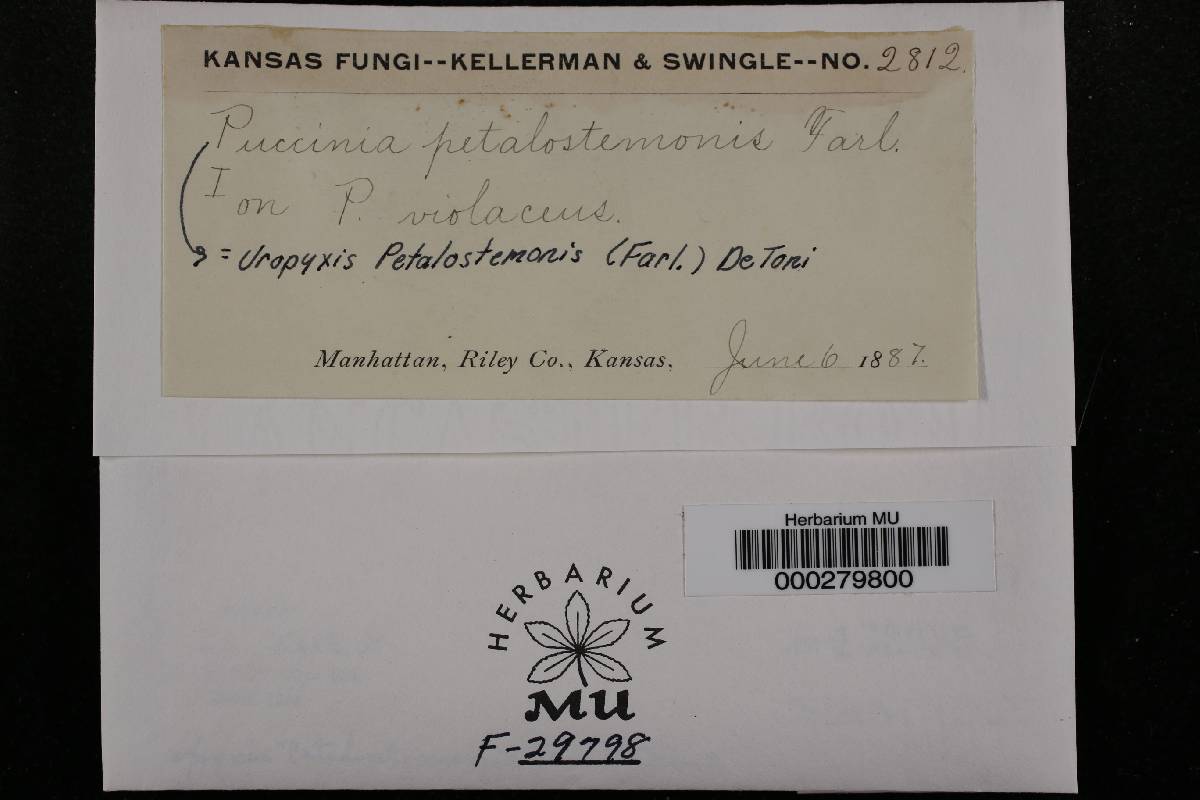 KANSAS FUNGI--KELLERMAN & SWINGLE--NO. 2812.
Puccinia petalostemonis Farl.
I on P. violaceus.
= Uropyxis Petalostemonis (Farl.) DeToni
Manhattan, Riley Co., Kansas, June 6 1887.
Herbarium MU
000279800
HERBARIUM
MU
F-29798